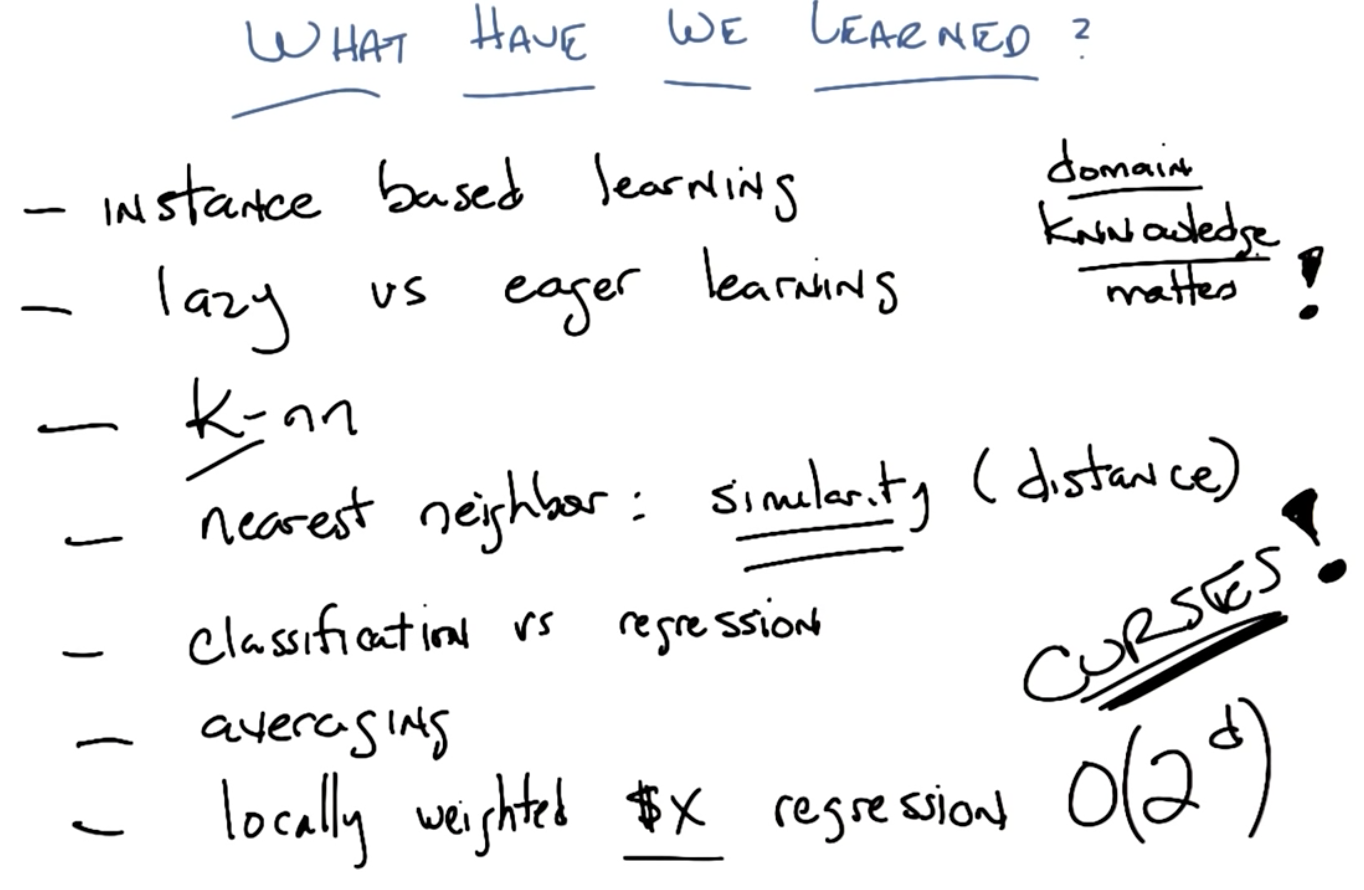 WHAT HAVE WE LEARNED?
- instance based learning
- lazy vs eager learning
- k-nn
- nearest neighbor: similarity (distance)
- classification vs regression
- averaging
- locally weighted $X regression
domain
KNNowledge
matters
!
CURSES!
O(2^d)